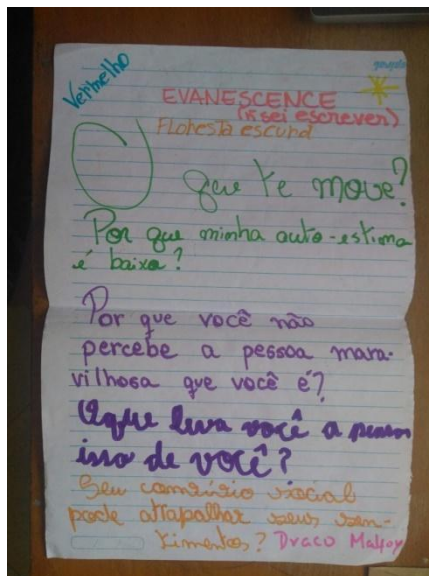 Vermelho
EVANESCENCE
(ñ sei escrever)
Floresta escura
O que te move?
Por que minha auto-estima
é baixa?
Por que você não
percebe a pessoa mara-
vilhosa que você é?
O que leva você a pensar
isso de você?
Seu convívio social
pode attapalhar seus sen-
timentos? Draco Malfoy